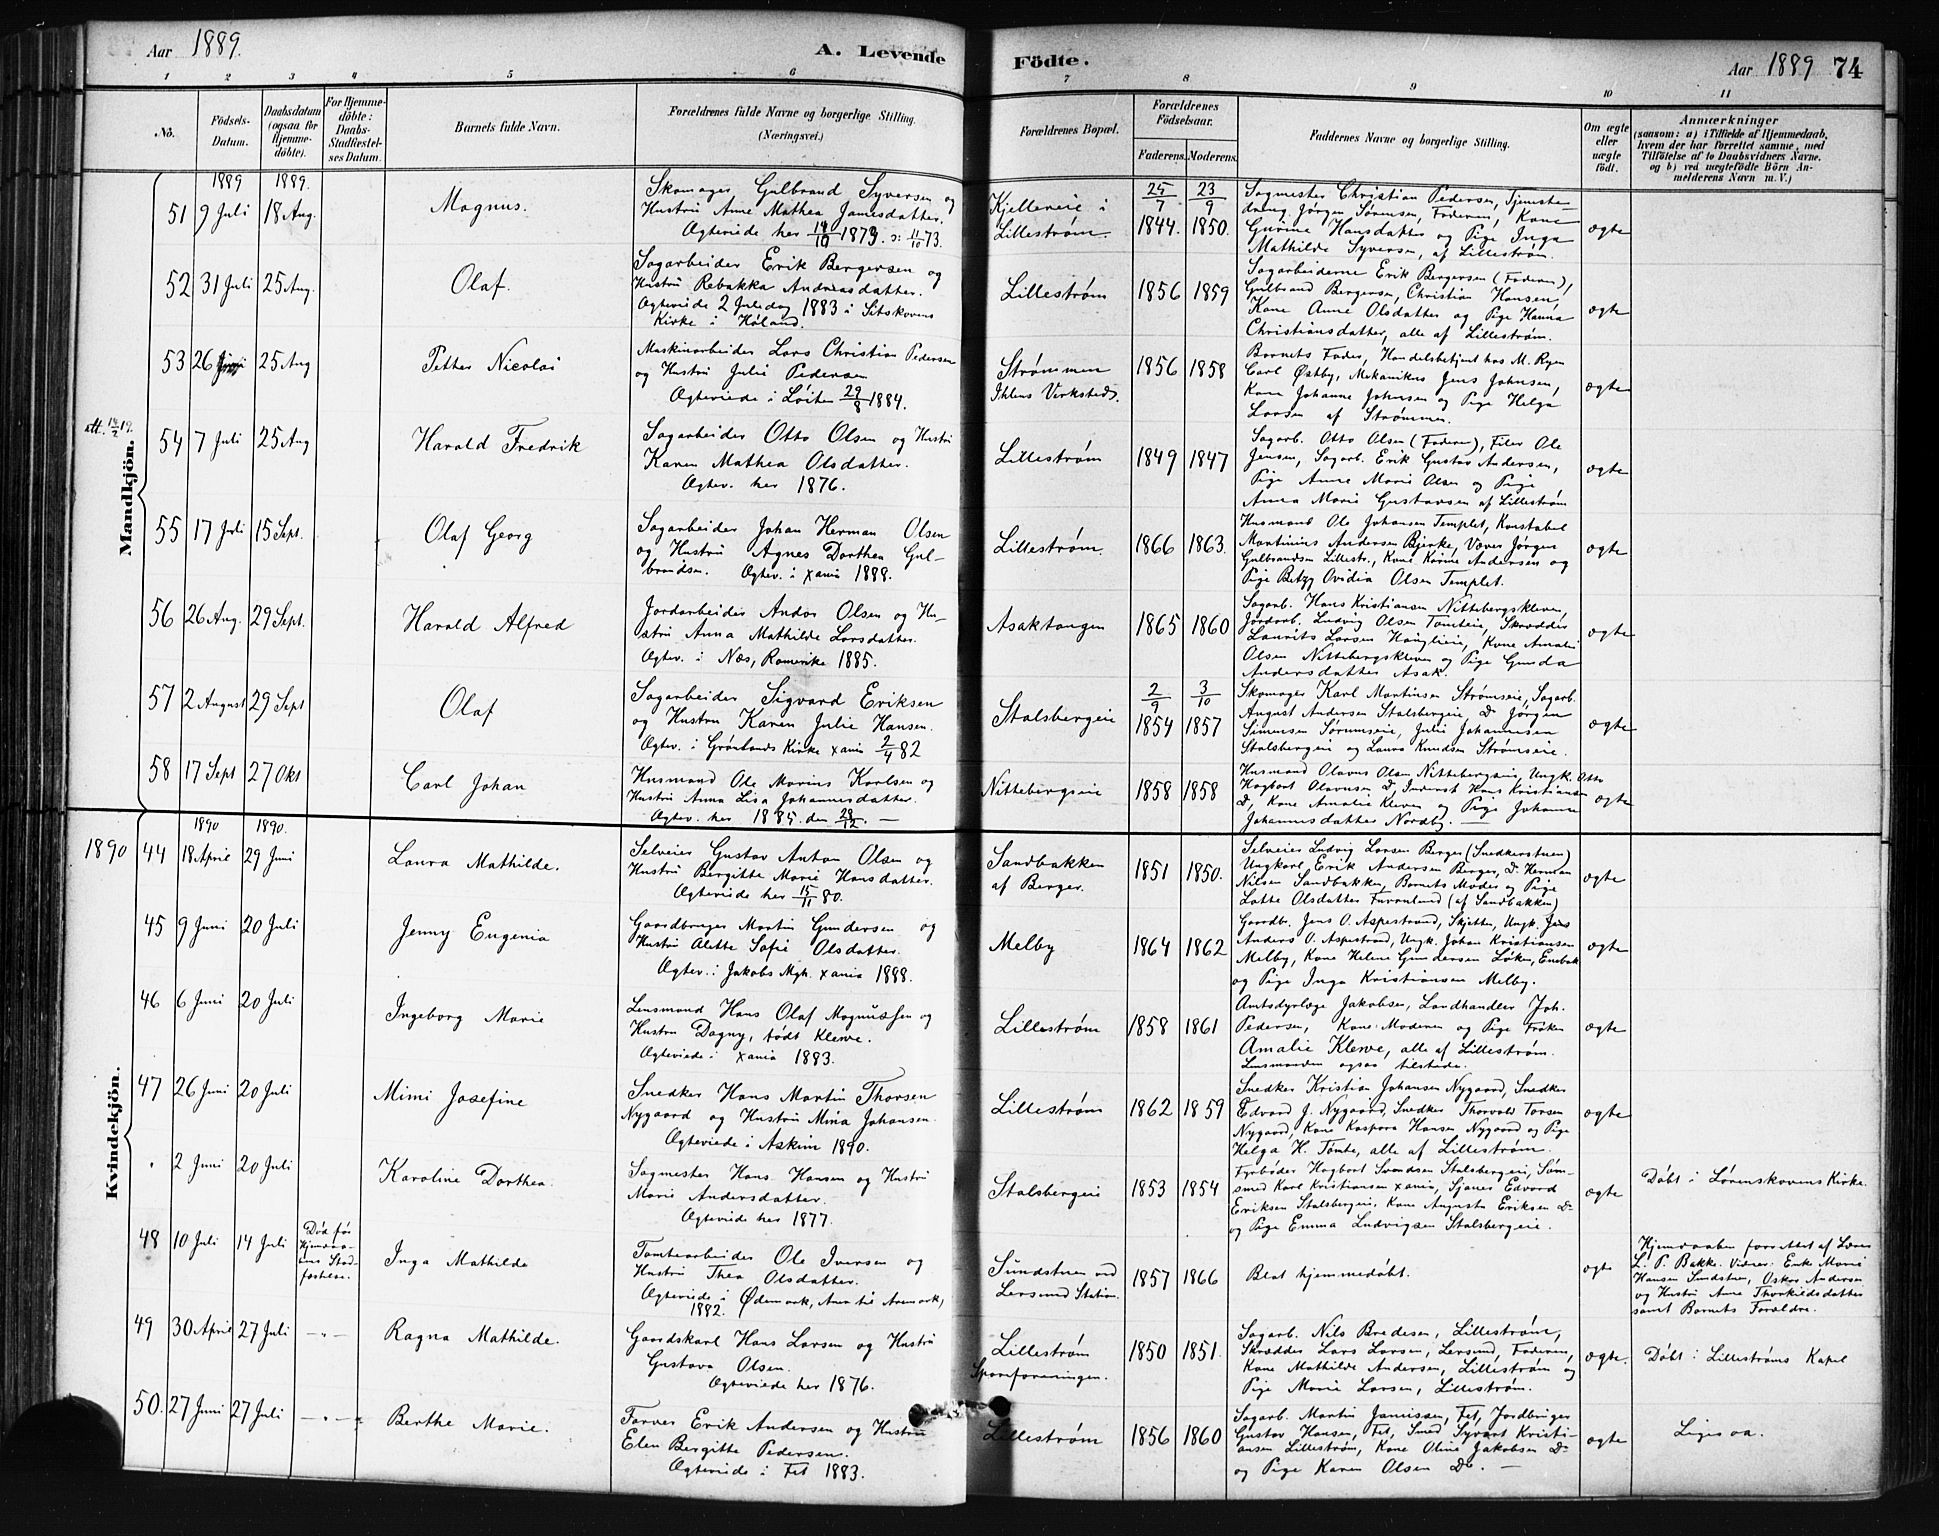 Aar 1889.
A. Levende
Födte.
Aar 1889 74
1 2 3 4 5 6 7 8 9 10 11
No.
Födsels-
Datum.
Daabsdatum
(ogsaa for
Hjemme-
döbte).
For Hjemme-
döbte:
Daabs-
Stadfæstel-
ses Datum.
Barnets fulde Navn.
Forældrenes fulde Navne og borgerlige Stilling.
(Næringsvei.)
Forældrenes Bopæl.
Forældrenes
Födselsaar.
Faderens. Moderens.
Faddernes Navne og borgerlige Stilling.
Om ægte
eller
uægte
födt.
Anmærkninger
(saasom: a) i Tilfælde af Hjemmedaab,
hvem der har forrettet samme, med
Tilföielse af to Daabsvidners Navne,
og b) ved uægtefödte Börn An-
melderens Navn m. V.)
Mandkjön.
1889 1889.
51 9 Juli 18 Aug.
Magnus.
Skomager Gulbrand Syversen og
Hustru Anne Mathea Jamesdatter.
Ægteviede her 1873.
Kjelleveie i
Lillestrøm.
25/7 1844. 23/9 1850.
Sagmester Christian Pedersen, Tjeneste-
dreng Jörgen Sørensen, Faderen, Kone
Gurine Hansdatter og Pige Inga
Mathilde Syversen, af Lillestrøm.
ægte
52 31 Juli 25 Aug.
Olaf.
Sagarbeider Erik Bergersen og
Hustru Rebakka Andreasdatter.
Ægteviede 2 Juledag 1883 i Sitskovens
Kirke i Høland.
Lillestrøm
1856 1859
Sagarbeiderne Erik Bergersen (Faderen),
Gulbrand Bergersen, Christian Hansen,
Kone Anne Olsdatter og Pige Hanna
Christiansdatter, alle af Lillestrøm.
ægte
53 26 25 Aug
Petter Nicolai
Maskinarbeider Lars Christian Pedersen
og Hustru Julie Pedersen
Ægteviede i Löiten 29/8 1884.
Strømmen
Ihlens Verksted.
1856 1858
Barnets Fader, Handelsbetjent hos M. Ryen
Carl Østby, Mekanikus Jens Johnsen,
Kone Johanne Johnsen og Pige Helga
Larsen af Strømmen.
ægte
att. 14/2 19.
54 7 Juli 25 Aug
Harald Fredrik
Sagarbeider Otto Olsen og Hustru
Karen Mathea Olsdatter.
Ægtev. her 1876.
Lillestrøm
1849 1847
Sagarb. Otto Olsen (Faderen), Filer Ole
Jensen, Sagarb. Erik Gustav Andersen,
Pige Anne Marie Olsen og Pige
Anna Marie Gustavsen af Lillestrøm
ægte
55 17 Juli 15 Sept.
Olaf Georg
Sagarbeider Johan Herman Olsen
og Hustru Agnes Dorthea Gul-
brandsen. Ægtev. i Xania 1888.
Lillestrøm.
1866 1863.
Husmand Ole Johansen Templet, Konstabel
Martinius Andersen Bjerke, Væver Jörgen
Gulbrandsen Lillestr., Kone Karine Andersen og
Pige Betzy Ovidia Olsen Templet.
ægte
56 26 Aug. 29 Sept.
Harald Alfred
Jordarbeider Andor Olsen og Hu-
stru Anna Mathilde Larsdatter.
Ægtev. i Næs, Romerike 1885.
Asaktangen
1865 1860
Sagarb. Hans Kristiansen Nittebergskleven,
Jordarb. Ludvig Olsen Tomteie, Skrædder
Laurits Larsen Hauglieie, Kone Amalie
Olsen Nittebergskleven og Pige Gunda
Andersdatter Asak.
ægte
57 2 August 29 Sept
Olaf
Sagarbeider Sigvard Eriksen
og Hustru Karen Julie Hansen.
Ægtev. i Grønlands Kirke Xania 2/4 82
Stalsbergeie
2/9 1854 3/10 1857
Skomager Karl Martinsen Strømseie, Sagarb.
August Andersen Stalsbergeie, Do Jörgen
Simensen Sørumseie, Julie Johannesen
Stalsbergeie og Laura Knudsen Strømseie.
ægte
58 17 Sept 27 Okt
Carl Johan
Husmand Ole Marius Karlsen og
Hustru Anna Lisa Johannesdatter.
Ægtev. her 1885 den 28/12. —
Nittebergseie
1858 1858
Husmand Olavus Olsen Nittebergseie, Ungk. Otto
Hagbart Olavusen Do, Inderst Hans Kristiansen
Do, Kone Amalie Kleven og Pige Johanne
Johannesdatter Nordby. —
ægte
Kvindekjön.
1890 1890 1890.
44 18 April 29 Juni
Laura Mathilde.
Selveier Gustav Anton Olsen og
Hustru Bergitte Marie Hansdatter.
Ægteviede her 15/11 80.
Sandbakken
af Berger.
1851 1850.
Selveier Ludvig Larsen Berger (Snedkerstuen)
Ungkarl Erik Andersen Berger, Do Herman
Nilsen Sandbakken, Barnets Moder og Pige
Lotte Olsdatter Furenlund (af Sandbakken)
ægte
45 9 Juni 20 Juli
Jenny Eugenia
Gaardbruger Martin Gundersen og
Hustru Alette Sofie Olsdatter.
Ægtev. i Jakobs Mgh. Xania 1888.
Melby
1864 1862
Gaardbr. Jens O. Aspestrand, Skjetten, Ungk. Jens
Anders O. Aspestrand, Ungk. Johan Kristiansen
Melby, Kone Helene Gundersen Løken, Enebak
og Pige Inga Kristiansen Melby.
ægte
46 6 Juni 20 Juli
Ingeborg Marie
Lensmand Hans Olaf Magnussen og
Hustru Dagny, født Klewe.
Ægteviede i Xania 1883.
Lillestrøm
1858 1861
Amtsdyrlæge Jakobsen, Landhandler Joh.
Pedersen, Kone: Moderen og Pige Frøken
Amalie Klewe, alle af Lillestrøm.
Lensmanden ogsaa tilstede.
ægte
47 26 Juni 20 Juli
Mimi Josefine
Snedker Hans Martin Thorsen
Nygaard og Hustru Mina Johansen.
Ægteviede i Askim 1890.
Lillestrøm
1862 1859
Snedker Kristian Johansen Nygaard, Snedker
Edvard J. Nygaard, Snedker Thorvald Torsen
Nygaard, Kone Kaspara Hansen Nygaard og Pige
Helga H. Tømte, alle af Lillestrøm.
ægte
" 2 Juni 20 Juli
Karoline Dorthea.
Sagmester Hans Hansen og Hustru
Marie Andersdatter.
Ægteviede her 1877.
Stalsbergeie
1853 1854
Fyrbøder Hagbart Svendsen Stalsbergeie, Søm-
smed Karl Kristiansen Xania, Sjauer Edvard
Eriksen Stalsbergeie, Kone Augusta Eriksen Do
og Pige Emma Ludvigsen Stalsbergeie.
ægte
Døbt i Lørenskovens Kirke.
48 10 Juli 14 Juli
Død før
Hjemmeda-
bens Stad-
fæstelse.
Inga Mathilde
Tomtearbeider Ole Iversen og
Hustru Thea Olsdatter.
Ægteviede i Ødemark, Anx til Aremark,
1882.
Sundstuen ved
Lersund Station.
1857 1866
Blot hjemmedøbt.
ægte
Hjemmedaaben forrettet af Lærer
L. P. Bakke. Vidner: Enke Marie
Hansen Sundstuen, Oskar Andersen
og Hustru Anne Thorkildsdatter
samt Barnets Forældre.
49 30 April 27 Juli — " —
Ragna Mathilde.
Gaardskarl Hans Larsen og Hustru
Gustava Olsen.
Ægteviede her 1876.
Lillestrøm
Sporforeningen.
1850 1851.
Sagarb. Nils Bredesen, Lillestrøm,
Skrædder Lars Larsen, Lersund, Faderen,
Kone Mathilde Andersen, Lillestrøm og
Pige Marie Larsen, Lillestrøm.
ægte.
Døbt i Lillestrøms Kapel
50. 27 Juni 27 Juli — " —
Berthe Marie.
Farver Erik Andersen og Hustru
Elen Bergitte Pedersen.
Ægteviede i Fet 1883.
Lillestrøm
1856 1860
Sagarb. Martin Jamissen, Fet, Jordbruger
Gustav Hansen, Fet, Smed Syvert Kristi-
ansen Lillestrøm, Kone Oline Jakobsen Do
og Pige Karen Olsen Do. —
ægte
Ligesaa.